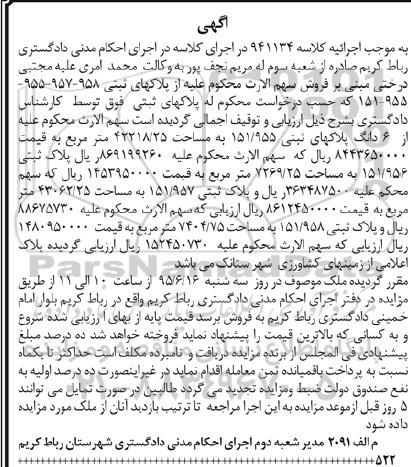 آگهی
به موجب اجرائیه کلاسه ۹۴۱۱۳۴ در اجرای کلاسه در اجرای احکام مدنی دادگستری
رباط کریم صادره از شعبه سوم له مریم نجف پور به وکالت محمد امری علیه مجتبی
درختی مبنی بر فروش سهم الارث محکوم علیه از پلاکهای ثبتی ۹۵۸-۹۵۷-۹۵۵-
۹۵۵-۱۵۱ که حسب درخواست محکوم له پلاکهای ثبتی فوق توسط کارشناس
دادگستری بشرح ذیل ارزیابی و توقیف اجمالی گردیده است سهم الارث محکوم علیه
از ۶ دانگ پلاکهای ثبتی ۱۵۱/۹۵۵ به مساحت ۴۳۲۱۸/۲۵ متر مربع به قیمت
۸۴۴۳۶۵۰۰۰۰ ریال که سهم الارث محکوم علیه ۸۶۹۱۹۹۲۶۰ ریال پلاک ثبتی
۱۵۱/۹۵۶ به مساحت ۷۲۶۹/۲۵ متر مربع به قیمت ۱۴۵۳۹۵۰۰۰۰ ریال که سهم
محکم علیه ۳۶۳۴۸۷۵۰۰ ریال و پلاک ثبتی ۱۵۱/۹۵۷ به مساحت ۴۳۰۶۲/۲۵ متر
مربع به قیمت ۸۶۱۲۴۵۰۰۰۰ ریال ارزیابی که سهم الارث محکوم علیه ۸۸۶۷۵۷۳۰
ریال و پلاک ثبتی ۱۵۱/۹۵۸ به مساحت ۷۴۰۴/۷۵ متر مربع به قیمت ۱۴۸۰۹۵۰۰۰۰
ریال ارزیابی که سهم الارث محکوم علیه ۱۵۲۴۵۰۷۳۰ ریال ارزیابی گردیده پلاک
اعلامی از زمینهای کشاورزی شهرستانک می باشد
مقرر گردیده ملک موصوف در روز سه شنبه ۹۵/۶/۱۶ از ساعت ۱۰ الی ۱۱ از طریق
مزایده در دفتر اجرای احکام مدنی دادگستری رباط کریم واقع در رباط کریم بلوار امام
خمینی دادگستری رباط کریم به فروش برسد قیمت پایه از بهای ارزیابی شده شروع
و به کسانی که بالاترین قیمت را پیشنهاد نماید فروخته خواهد شد ده درصد مبلغ
پیشنهادی فی المجلس از برنده مزایده دریافت و نامبرده مکلف است حداکثر تا یکماه
نسبت به پرداخت باقمیانده ثمن معامله اقدام نماید در غیر اینصورت ده درصد اولیه به
نفع صندوق دولت ضبط ومزایده تجدید می گردد طالبین در صورت تمایل می توانند
۵ روز قبل از موعد مزایده به این اجرا مراجعه تا ترتیب بازدید آنان از ملک مورد مزایده
داده شود
م الف ۲۰۹۱ مدیر شعبه دوم اجرای احکام مدنی دادگستری شهرستان رباط کریم
۵۲۲